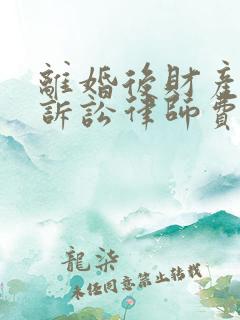 離婚後財產
訴訟律師費
龍柒
未經同意禁止轉載